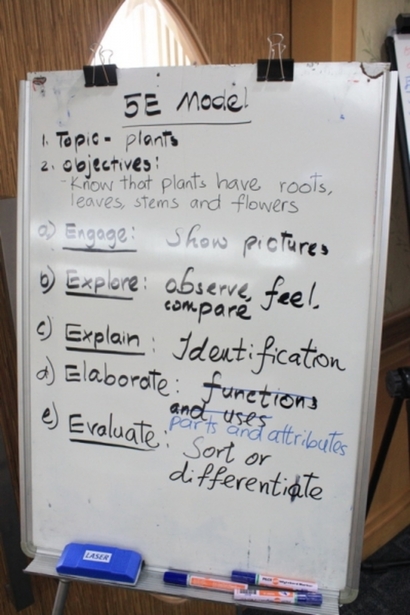 5E Model
1. Topic - plants
2. objectives:
- Know that plants have roots,
leaves, stems and flowers
a) Engage: Show pictures
b) Explore: observe, feel,
compare
c) Explain: Identification
d) Elaborate: functions
and uses
parts and attributes
e) Evaluate: Sort or
differentiate
LASER